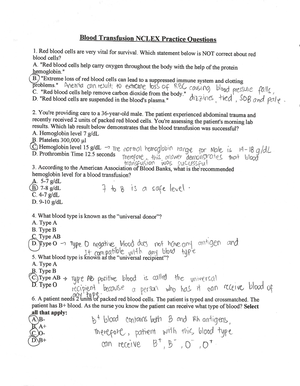 Blood Transfusion NCLEX Practice Questions
1. Red blood cells are very vital for survival. Which statement below is NOT correct about red
blood cells?
A. "Red blood cells help carry oxygen throughout the body with the help of the protein
hemoglobin."
B. "Extreme loss of red blood cells can lead to a suppressed immune system and clotting
problems." Anemia can result to extreme loss of RBC causing blood pressure pale,
C. "Red blood cells help remove carbon dioxide from the body." dizziness, tired, SOB and pale.
D. "Red blood cells are suspended in the blood's plasma."
2. You're providing care to a 36-year-old male. The patient experienced abdominal trauma and
recently received 2 units of packed red blood cells. You're assessing the patient's morning lab
results. Which lab result below demonstrates that the blood transfusion was successful?
A. Hemoglobin level 7 g/dL
B. Platelets 300,000 µl
C. Hemoglobin level 15 g/dL → the normal hemoglobin range for Male is 14-18 g/dL
D. Prothrombin Time 12.5 seconds therefore, this answer demonstrates that blood
transfusion was successful
3. According to the American Association of Blood Banks, what is the recommended
hemoglobin level for a blood transfusion?
A. 5-7 g/dL
B. 7-8 g/dL 7 to 8 is a safe level.
C. 4-7 g/dL
D. 9-10 g/dL
4. What blood type is known as the "universal donor"?
A. Type A
B. Type B
C. Type AB
D. Type O → Type O negative, blood does not have any antigen and
it compatible with any blood type
5. What blood type is known as the "universal recipient"?
A. Type A
B. Type B
C. Type AB → Type AB positive blood is called the universal
D. Type O recipient because a person who has it can receive blood of
any type
6. A patient needs 2 units of packed red blood cells. The patient is typed and crossmatched. The
patient has B+ blood. As the nurse you know the patient can receive what type of blood? Select
all that apply:
A. B- B+ blood contains both B and Rh antigens,
B. A+ therefore, patient with this blood type
C. O- can receive B+, B-, O-, O+
D. B+